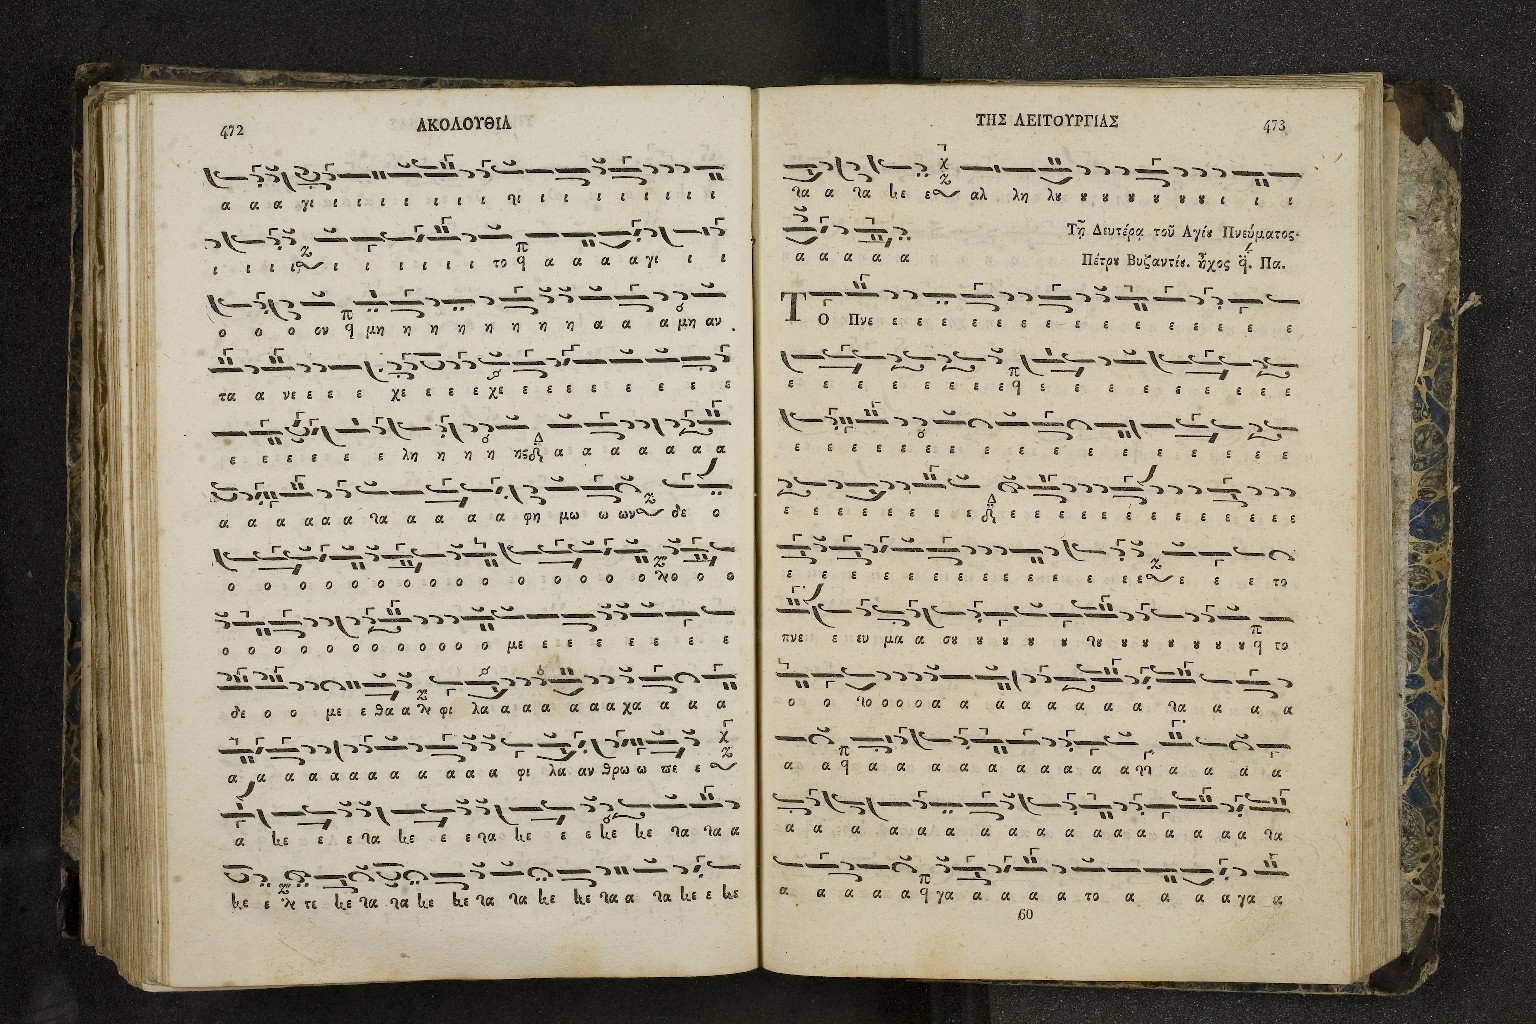 472
ΑΚΟΛΟΥΘΙΑ
α α α γι ι ι ι ι ι ι γι ι ι ι ι ι ι ι ι
ι ι ι ι ι ι ι ι ι ι το α α α α γι ι ι
ο ο ο ον μη η η η η η η η α α α μη αν
τα α νε ε ε ε χε ε ε ε χε ε ε ε ε ε ε ε ε
ε ε ε ε ε ε λη η η η ης α α α α α α α
α α α α α α τα α α α α φη μω ω ων δε ο
ο ο ο ο ο ο ο ο ο ο ο ο ο ο ο ο ο ο ο
ο ο ο ο ο ο ο ο ο ο ο με ε ε ε ε ε ε ε
δε ο ο με ε θα α φι λα α α α α α α χα α α α
α α α α α α α α α α α α φι λα αν θρω ω πε ε
α κε ε ε τα κε ε ε τα κε ε ε κε κε τα τα α
κε ε τε κε τα τα κε κε τα τα κε κε τα α τα κε ε κε
ΤΗΣ ΛΕΙΤΟΥΡΓΙΑΣ
473
τα α τα κε ε αλ λη λȣ ȣ ȣ ȣ ȣ ȣ ȣ ι ι ι
α α α α α
Τῇ Δευτέρᾳ τοῦ Αγίȣ Πνεύματος·
Πέτρȣ Βυζαντίȣ. ἦχος Πα.
Το Πνε ε ε ε ε ε ε ε ε ε ε ε ε ε ε ε
ε ε ε ε ε ε ε ε ε ε ε ε ε ε ε ε ε ε
ε ε ε ε ε ε ε ε ε ε ε ε ε ε ε ε
ε ε ε ε ε ε ε ε ε ε ε ε ε ε ε ε ε ε ε
ε ε ε ε ε ε ε ε ε ε ε ε ε ε ε ε ε το
πνε ε ευ μα α σȣ ȣ ȣ ȣ ȣ γȣ ȣ ȣ ȣ ȣ ȣ ȣ το
ο ο το ο ο ο α α α α α α α α τα α α α
α α α α α α α α α α α α α α α α
α α α α α α α α α α α α α α α α α τα
α α α α α γα α α α α το α α α α γα α
60